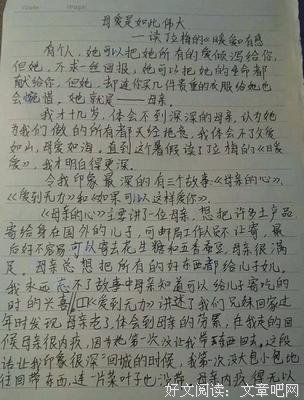 母爱是如此伟大
——读丁立梅的《暖爱》有感
有个人,她可以把她所有的爱倾泻给你,
但她,不求一丝回报,她可以把她的生命都
献给你,但她,却连你买几件贵重的衣服给她也
会惋惜,她就是——母亲。
我才十几岁,体会不到深深的母爱,认为她
为我们做的所有都天经地义。我体会不了父爱
如山,母爱如海,直到这个暑假读了丁立梅的《暖
爱》,我才明白得更深。
令我印象最深的有三个故事:《母亲的心》、
《爱到无力》和《如果可以这样爱你》。
《母亲的心》主要讲了一位母亲,想把许多土产品
寄给身在国外的儿子,可邮局工作人说不让寄,最
后好不容易可以寄去花生糖和五香蚕豆,母亲很满
足。母亲总想把所有的好东西都给儿子儿。
我永远忘不了故事中母亲知道可以给儿子寄吃的
时的兴喜。《爱到无力》讲述了我们兄妹回家过
年时发现母亲老了,体会到母亲的劳累,在我走的回
候母亲很内疚,因为她第一次没让我带东西回去。这段
话让我印象很深"回城的时候,我第一次没大包小包地
往回带东西,连一片菜叶子也没带。母亲内疚得无以
好文阅读:文章吧网